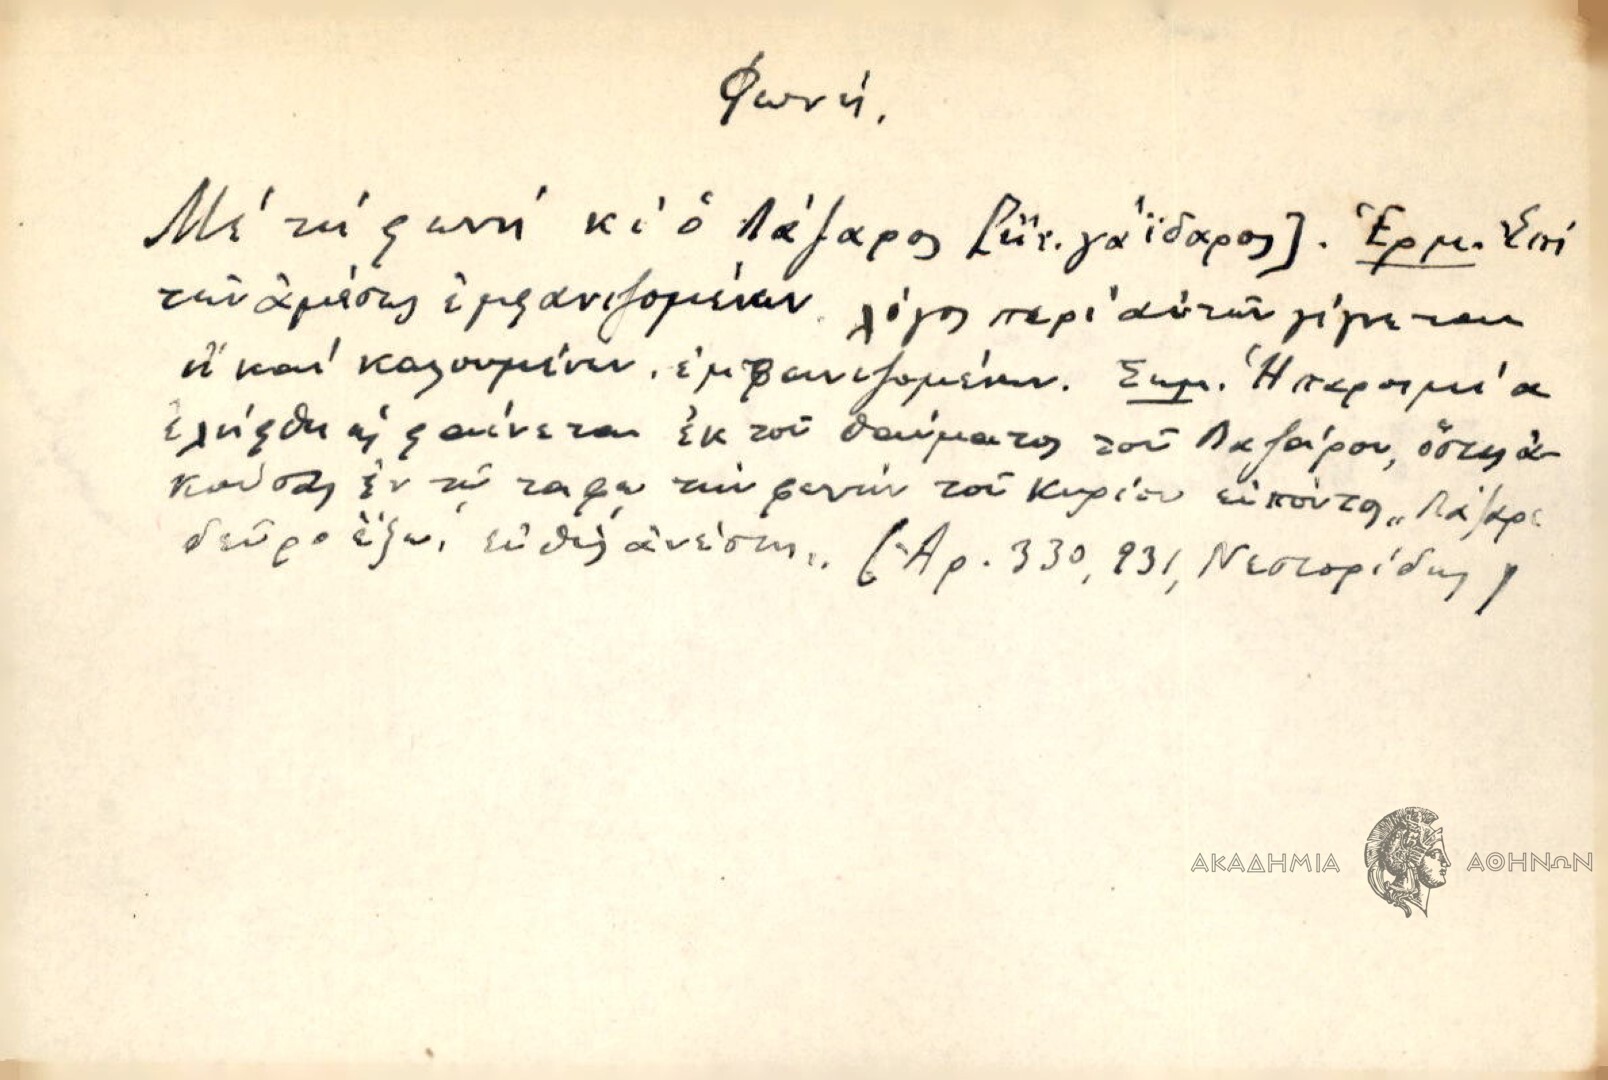 Φωνή.
Μέ τή φωνή κι ὁ Λάζαρος [ἤτε. γάϊδαρος]. Ἑρμ. Ἐπί
τῶν ἀμέσως ἐμφανιζομένων λόγος περί αὐτῶν γίγνεται
ἤ καί καλουμένων ἐμφανιζομένων. Σημ. Ἡ παροιμία
ἐλήφθη ὡς φαίνεται ἐκ τοῦ θαύματος τοῦ Λαζάρου, ὅστις ἀ-
κούσας ἐν τῷ τάφῳ τήν φωνήν τοῦ Κυρίου εἰπόντος „Λάζαρε
δεῦρο ἔξω, εὐθύς ἀνέστη„. (Ἀρ. 330, 931, Νεστορίδης)
ΑΚΑΔΗΜΙΑ ΑΘΗΝΩΝ